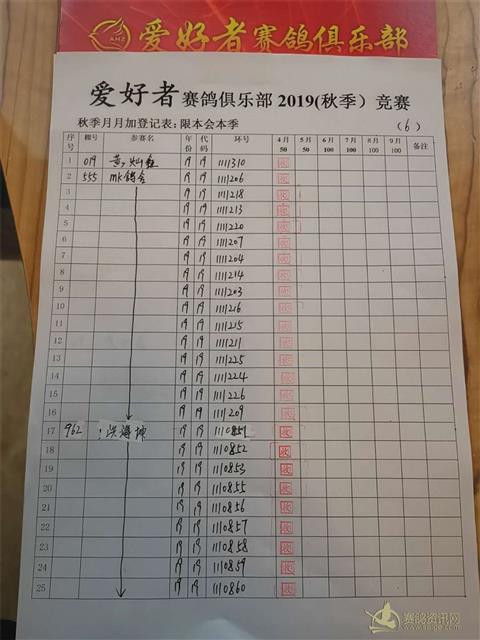 AHZ 爱好者赛鸽俱乐部
爱好者赛鸽俱乐部 2019(秋季）竞赛
秋季月月加登记表：限本会本季 (6)
序号 棚号 参赛名 年份 代码 环号 4月50 5月50 6月100 7月100 8月100 9月100 备注
1 019 19 19 1111310 收
2 555 MK鸽舍 19 19 1111206 收
3 19 19 1111218 收
4 19 19 1111213 收
5 19 19 1111220 收
6 19 19 1111207 收
7 19 19 1111204 收
8 19 19 1111214 收
9 19 19 1111203 收
10 19 19 1111216 收
11 19 19 1111215 收
12 19 19 1111211 收
13 19 19 1111225 收
14 19 19 1111224 收
15 19 19 1111226 收
16 19 19 1111209 收
17 962 洪海坤 19 19 1110851 收
18 19 19 1110852 收
19 19 19 1110853 收
20 19 19 1110855 收
21 19 19 1110856 收
22 19 19 1110857 收
23 19 19 1110858 收
24 19 19 1110859 收
25 19 19 1110860 收
赛鸽资讯网